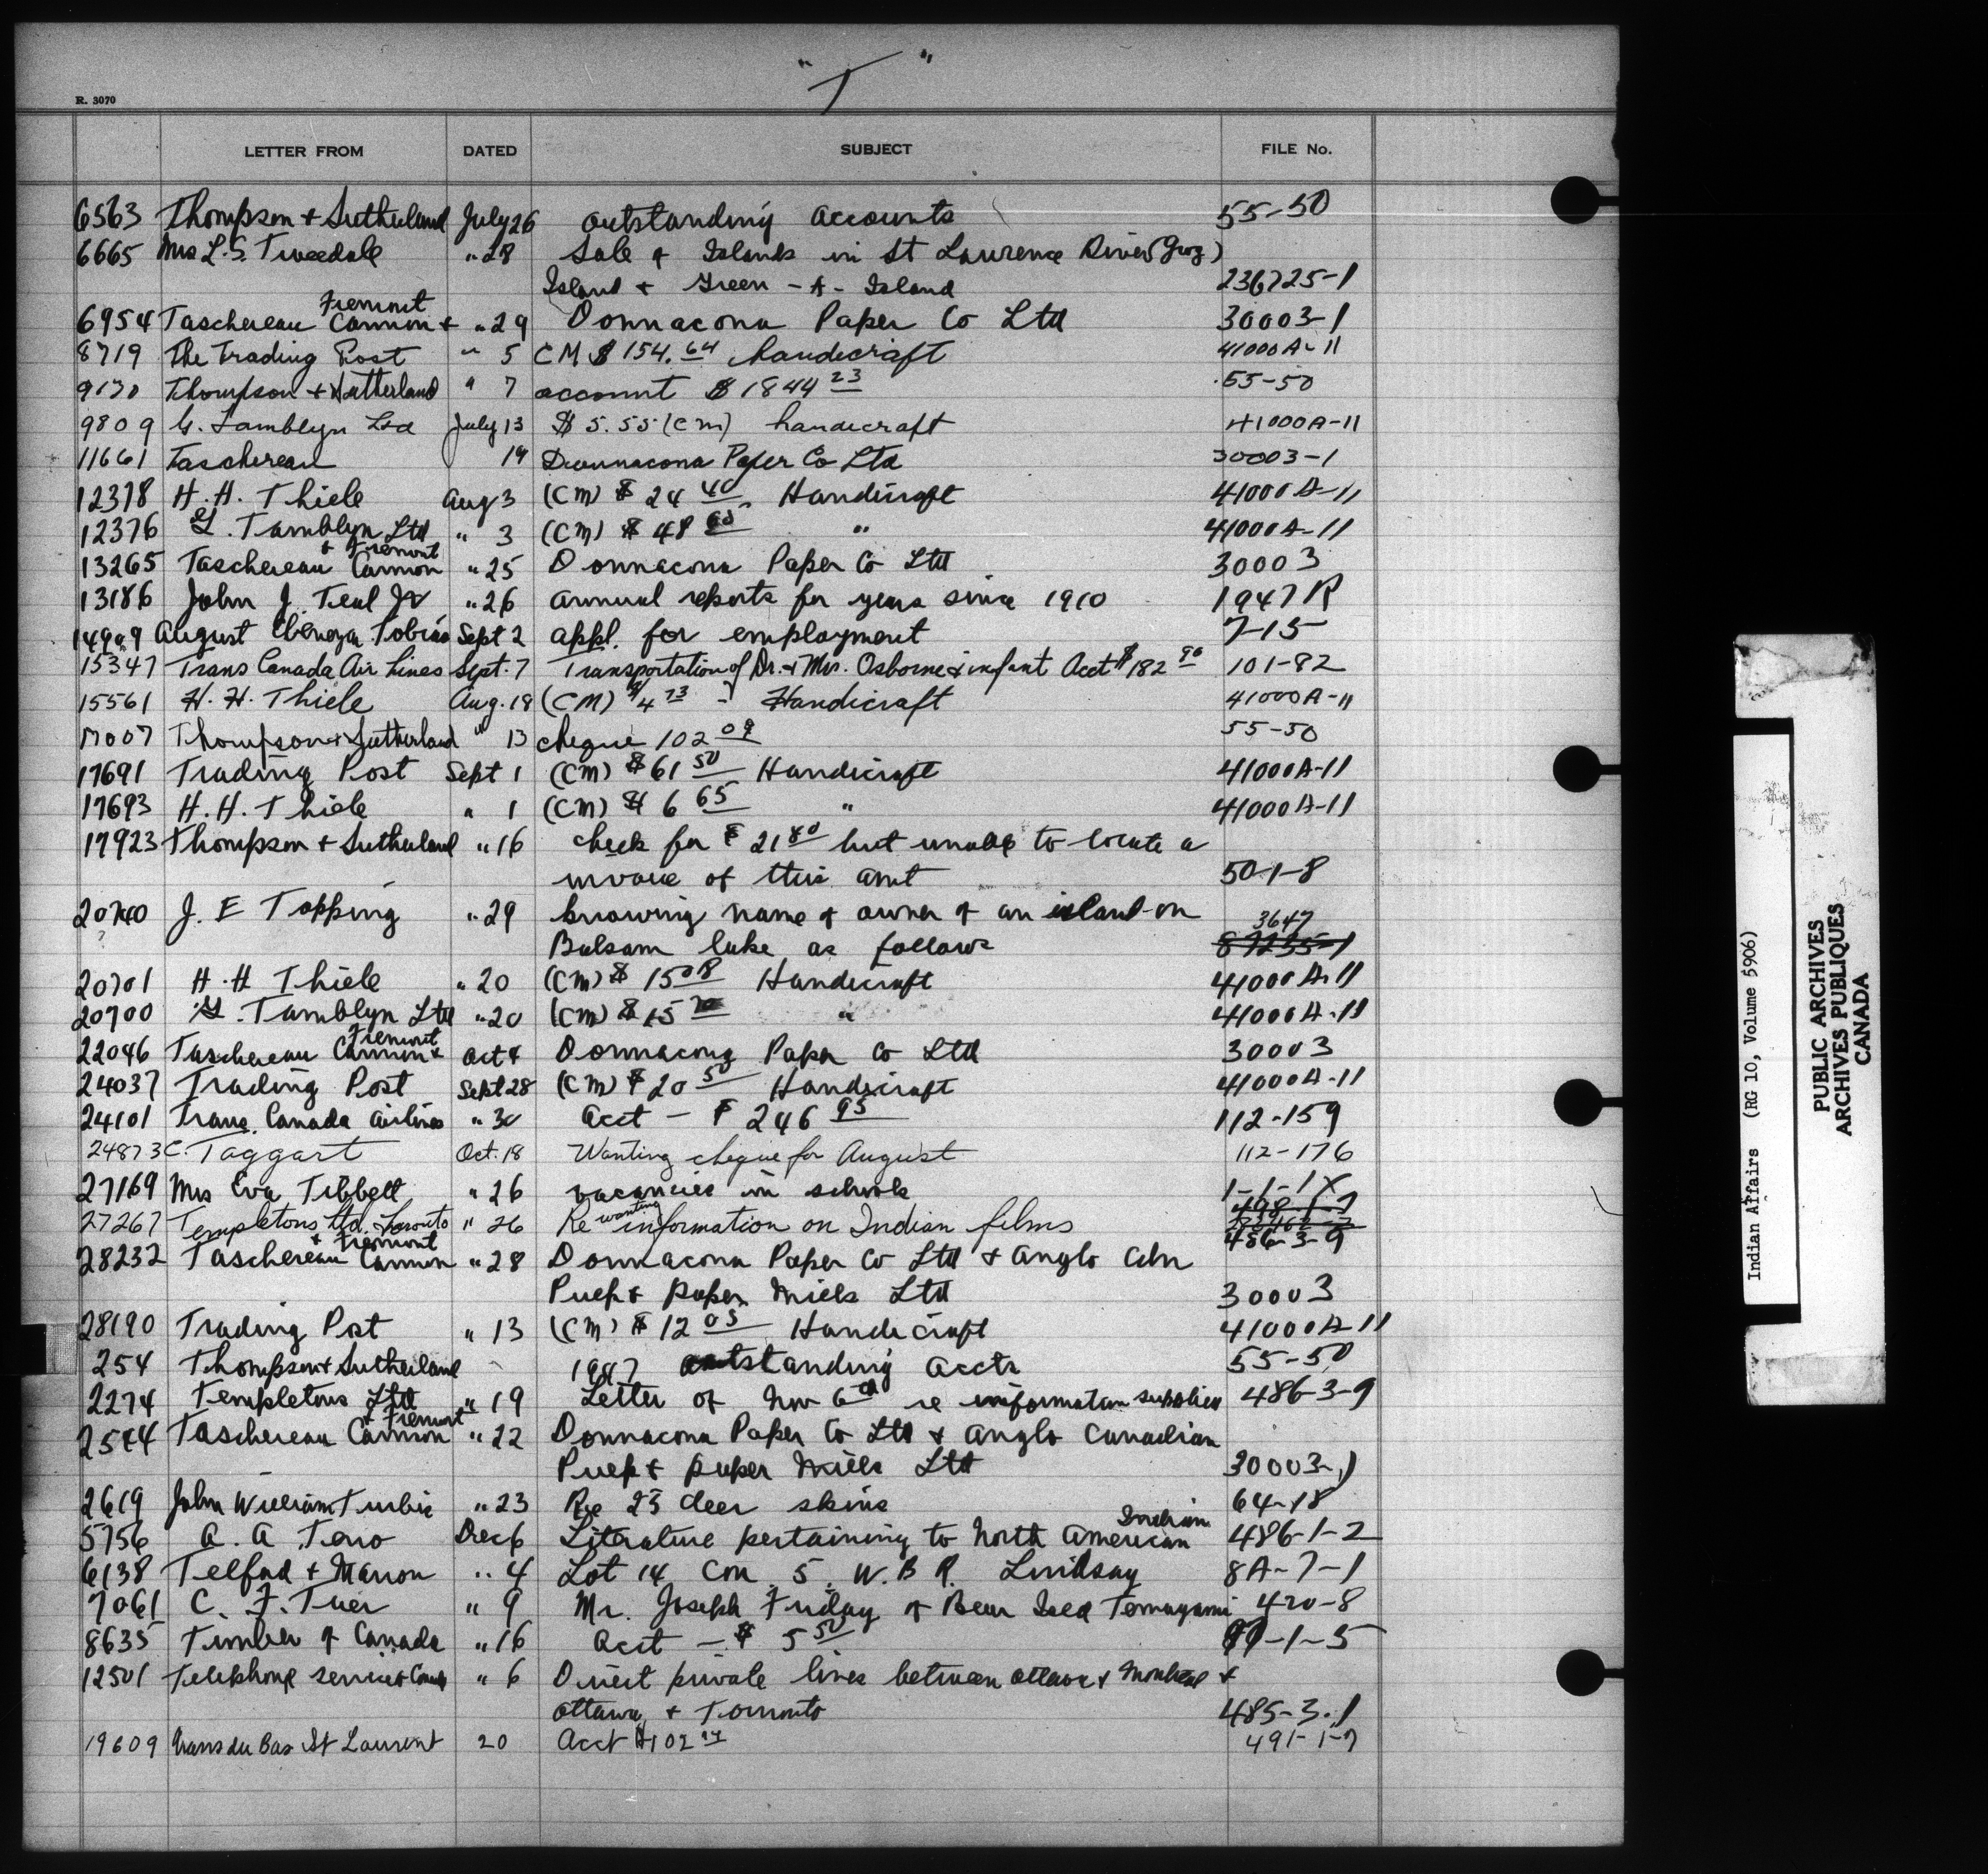 "T"
R. 3070
LETTER FROM DATED SUBJECT FILE No.
6563 Thompson + Sutherland July 26 outstanding accounts 55-50
6665 Mrs L.S. Tweedale " 28 Sale of Islands in St Lawrence River (Grog)
Island + Green - A - Island 236725-1
Fremont
6954 Taschereau Cannon + " 29 Donnacona Paper Co Ltd 30003-1
8719 The Trading Post " 5 CM $154.64 handicraft 41000A-11
9130 Thompson + Sutherland " 7 account $1844 23 55-50
9809 G. Tamblyn Ltd July 13 $5.55 (CM) handicraft 41000A-11
11661 Taschereau 19 Donnacona Paper Co Ltd 30003-1
12378 H. H. Thiele Aug 3 (CM) $24 40 Handicraft 41000A-11
12376 G. Tamblyn Ltd " 3 (CM) $48 " 41000A-11
+ Fremont
13265 Taschereau Cannon " 25 Donnacona Paper Co Ltd 30003
13186 John J. Teal Jr " 26 annual reports for years since 1910 1947R
14909 August Ebenezer Tobias Sept 2 appl. for employment 7-15
15347 Trans Canada Air Lines Sept. 7 Transportation of Dr. + Mrs. Osborne + infant Acct $182 90 101-82
15561 H. H. Thiele Aug. 18 (CM) $4 73 - Handicraft 41000A-11
17007 Thompson + Sutherland " 13 cheque 102 09 55-50
17691 Trading Post Sept 1 (CM) $61 50 Handicraft 41000A-11
17693 H. H. Thiele " 1 (CM) $6 65 " 41000A-11
17923 Thompson + Sutherland " 16 check for $21 80 but unable to locate a
invoice of this amt 50-1-8
20740 J. E Topping " 29 knowing name of owner of an island on 3647
Balsam lake as follows 87235-1
20701 H. H Thiele " 20 (CM) $15 08 Handicraft 41000A-11
20700 G. Tamblyn Ltd " 20 (CM) $15 " 41000A-11
Fremont
22046 Taschereau Cannon + Oct 4 Donnacona Paper Co Ltd 30003
24037 Trading Post Sept 28 (CM) $20 50 Handicraft 41000A-11
24101 Trans Canada Airlines " 30 Acct - $246 95 112-159
24873 C. Taggart Oct. 18 Wanting cheque for August 112-176
27169 Mrs Eva Tibbett " 26 vacancies in schools 1-1-1X
wanting 498-1-7
27267 Templetons Ltd. Toronto " 26 Re information on Indian films
+ Fremont 486-3-9
28232 Taschereau Cannon " 28 Donnacona Paper Co Ltd + Anglo Cdn
Pulp + Paper Mills Ltd 30003
28190 Trading Post " 13 (CM) $12 05 Handicraft 41000A-11
254 Thompson + Sutherland 1947 outstanding accts 55-50
2274 Templetons Ltd " 19 Letter of Nov 6th re information supplied 486-3-9
+ Fremont
2544 Taschereau Cannon " 22 Donnacona Paper Co Ltd + Anglo Canadian
Pulp + paper Mills Ltd 30003-1
2619 John William " 23 Re 23 deer skins 64-18
Indian
5756 A. A Teno Dec 6 Literature pertaining to North American 486-1-2
6138 Telford + Marron " 4 Lot 14 Con 5 W.B.R. Lindsay 8A-7-1
7061 C. F. Tuer " 9 Mr. Joseph Friday of Bear Isld Temagami 420-8
8635 Timber of Canada " 16 Acct - $5 50 -1-5
12501 Telephone service + Canada " 6 Direct private lines between Ottawa + Montreal +
Ottawa + Toronto 485-3-1
19609 Trans du Bas St Laurent 20 Acct $102 491-1-7
Indian Affairs (RG 10, Volume 5906)
PUBLIC ARCHIVES
ARCHIVES PUBLIQUES
CANADA